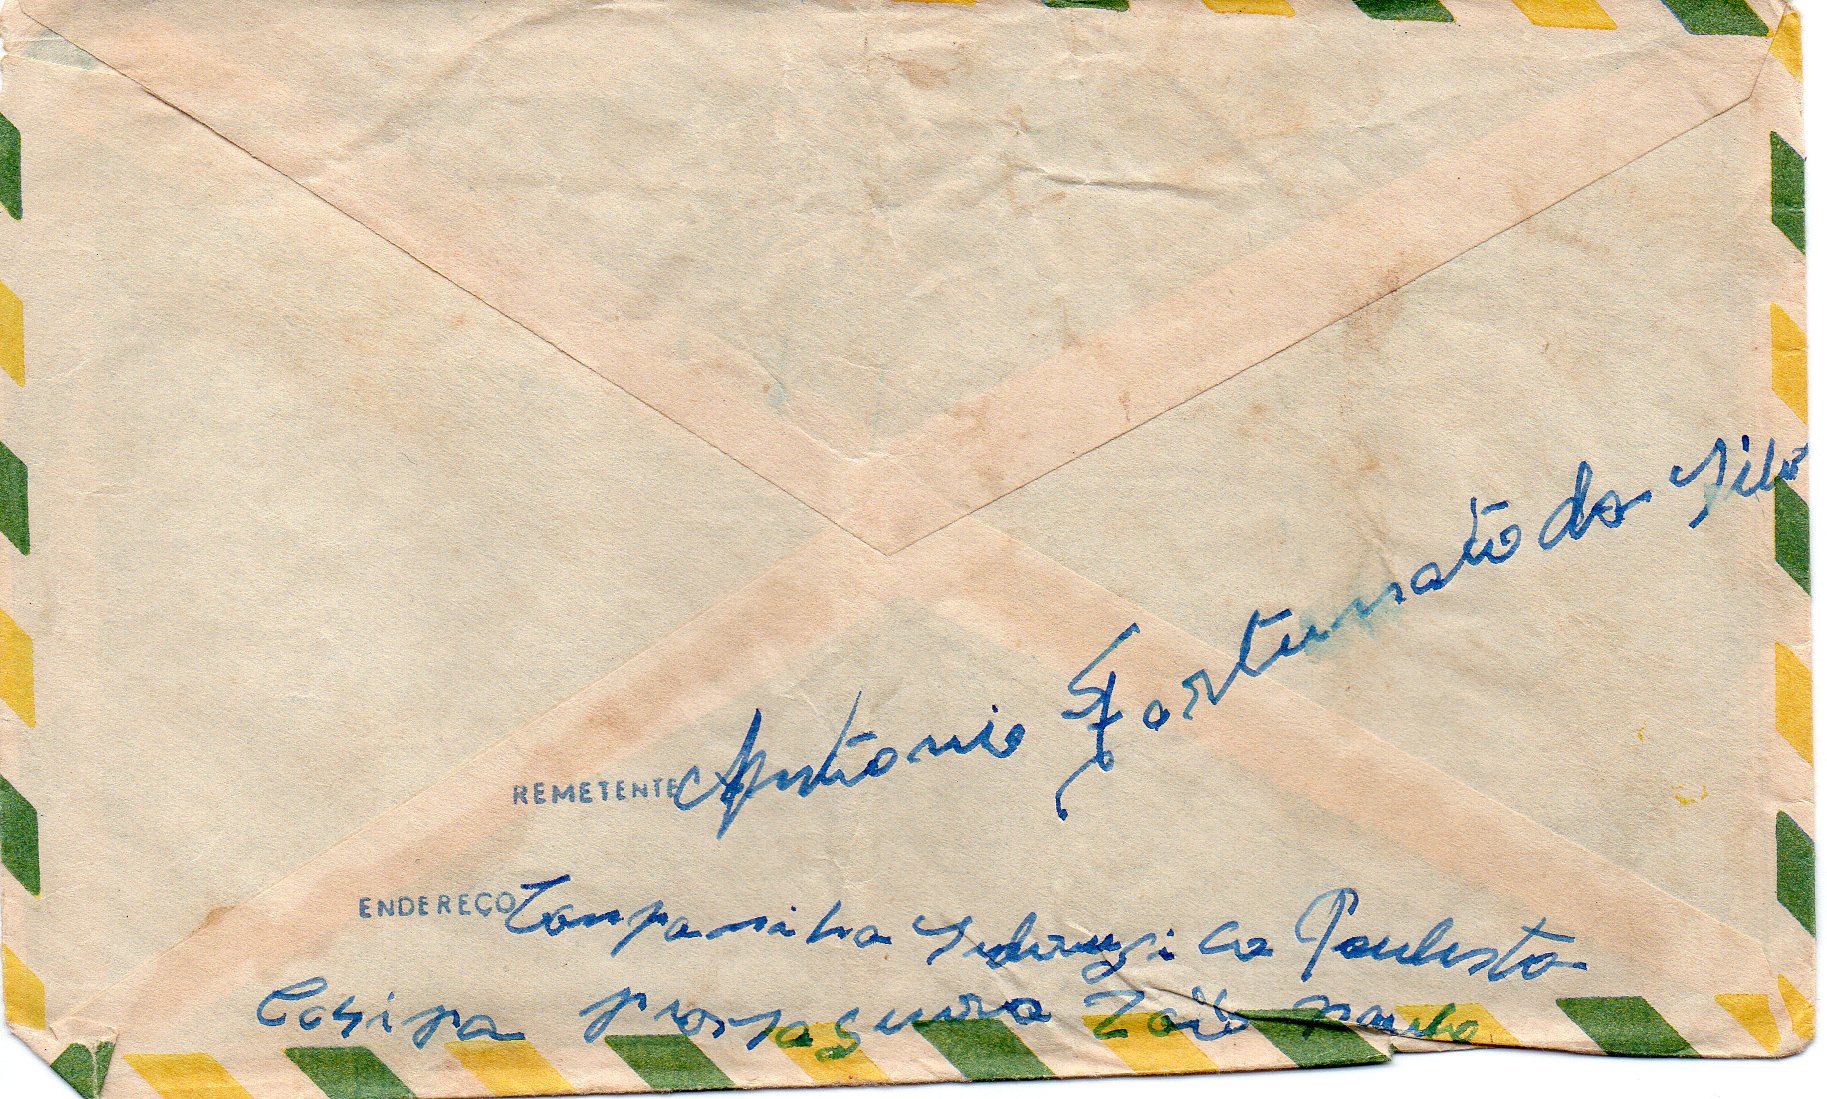 REMETENTE Antonio Fortunato da Silva
ENDEREÇO Companihia Siderurgica Paulista
Cosipa Piassaguera São Paulo